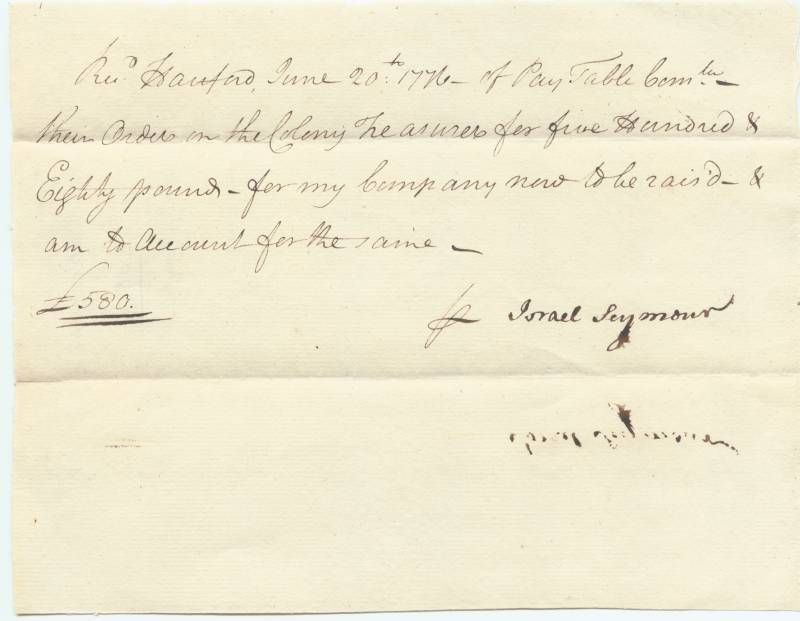 Rec.d Hartford, June 20.th 1776 – of Pay Table Com.tee –
their Order on the Colony Treasurer for five Hundred &
Eighty pound – for my Company now to be rais'd – &
am to Account for the same –
£580.
Pr Israel Seymour